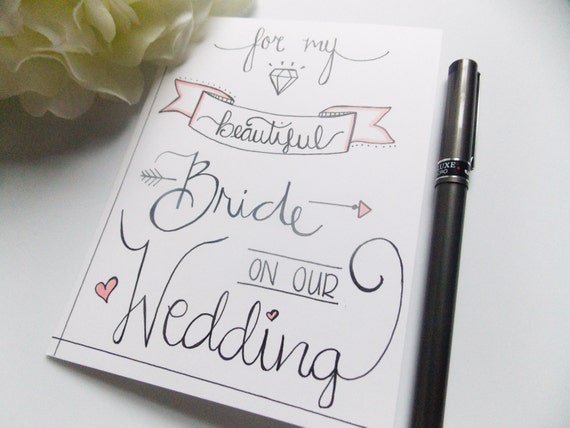 for my
beautiful
Bride
ON OUR
Wedding